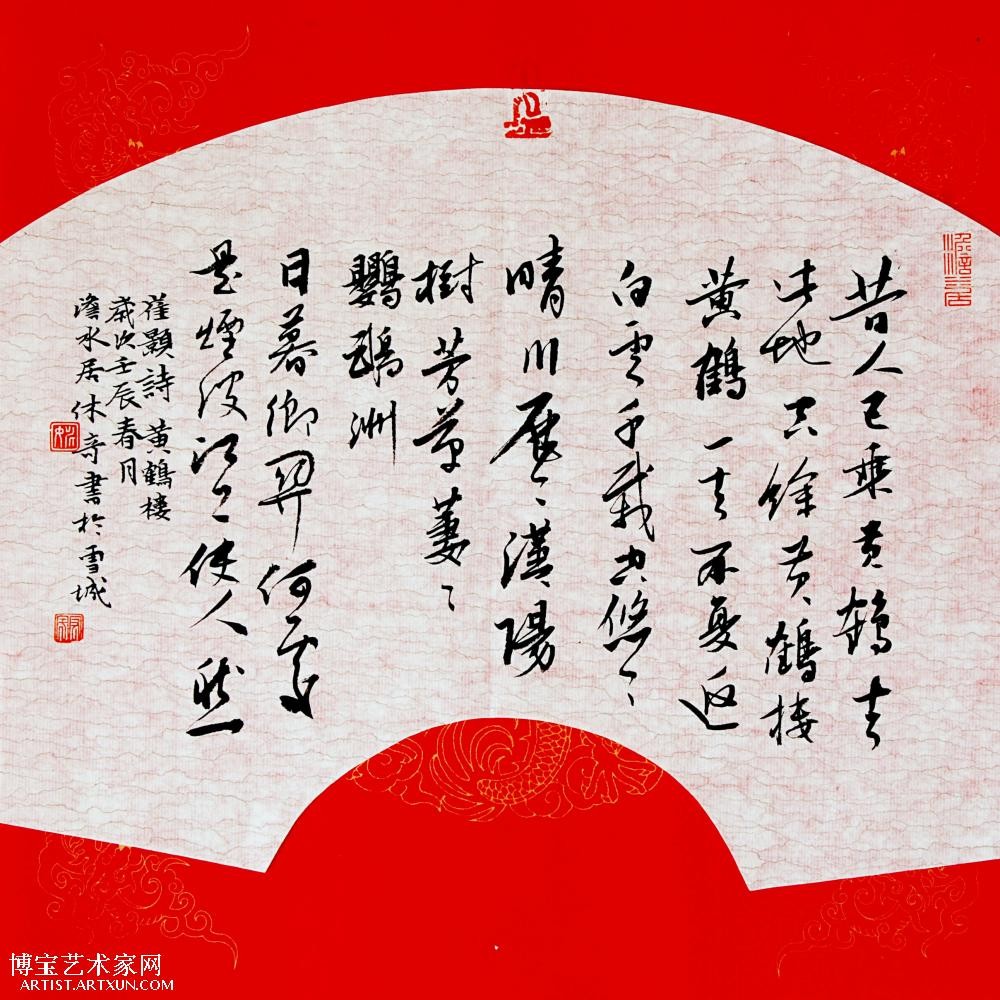 昔人已乘黄鶴去
此地空餘黄鶴樓
黄鶴一去不復返
白雲千載空悠々
晴川歷々漢陽
樹芳草萋々
鸚鵡洲
日暮鄉關何處
是煙波江上使人愁
崔顥詩 黄鶴樓
歲次壬辰春月
澹水居休奇書於雪城
博宝艺术家网
ARTIST.ARTXUN.COM